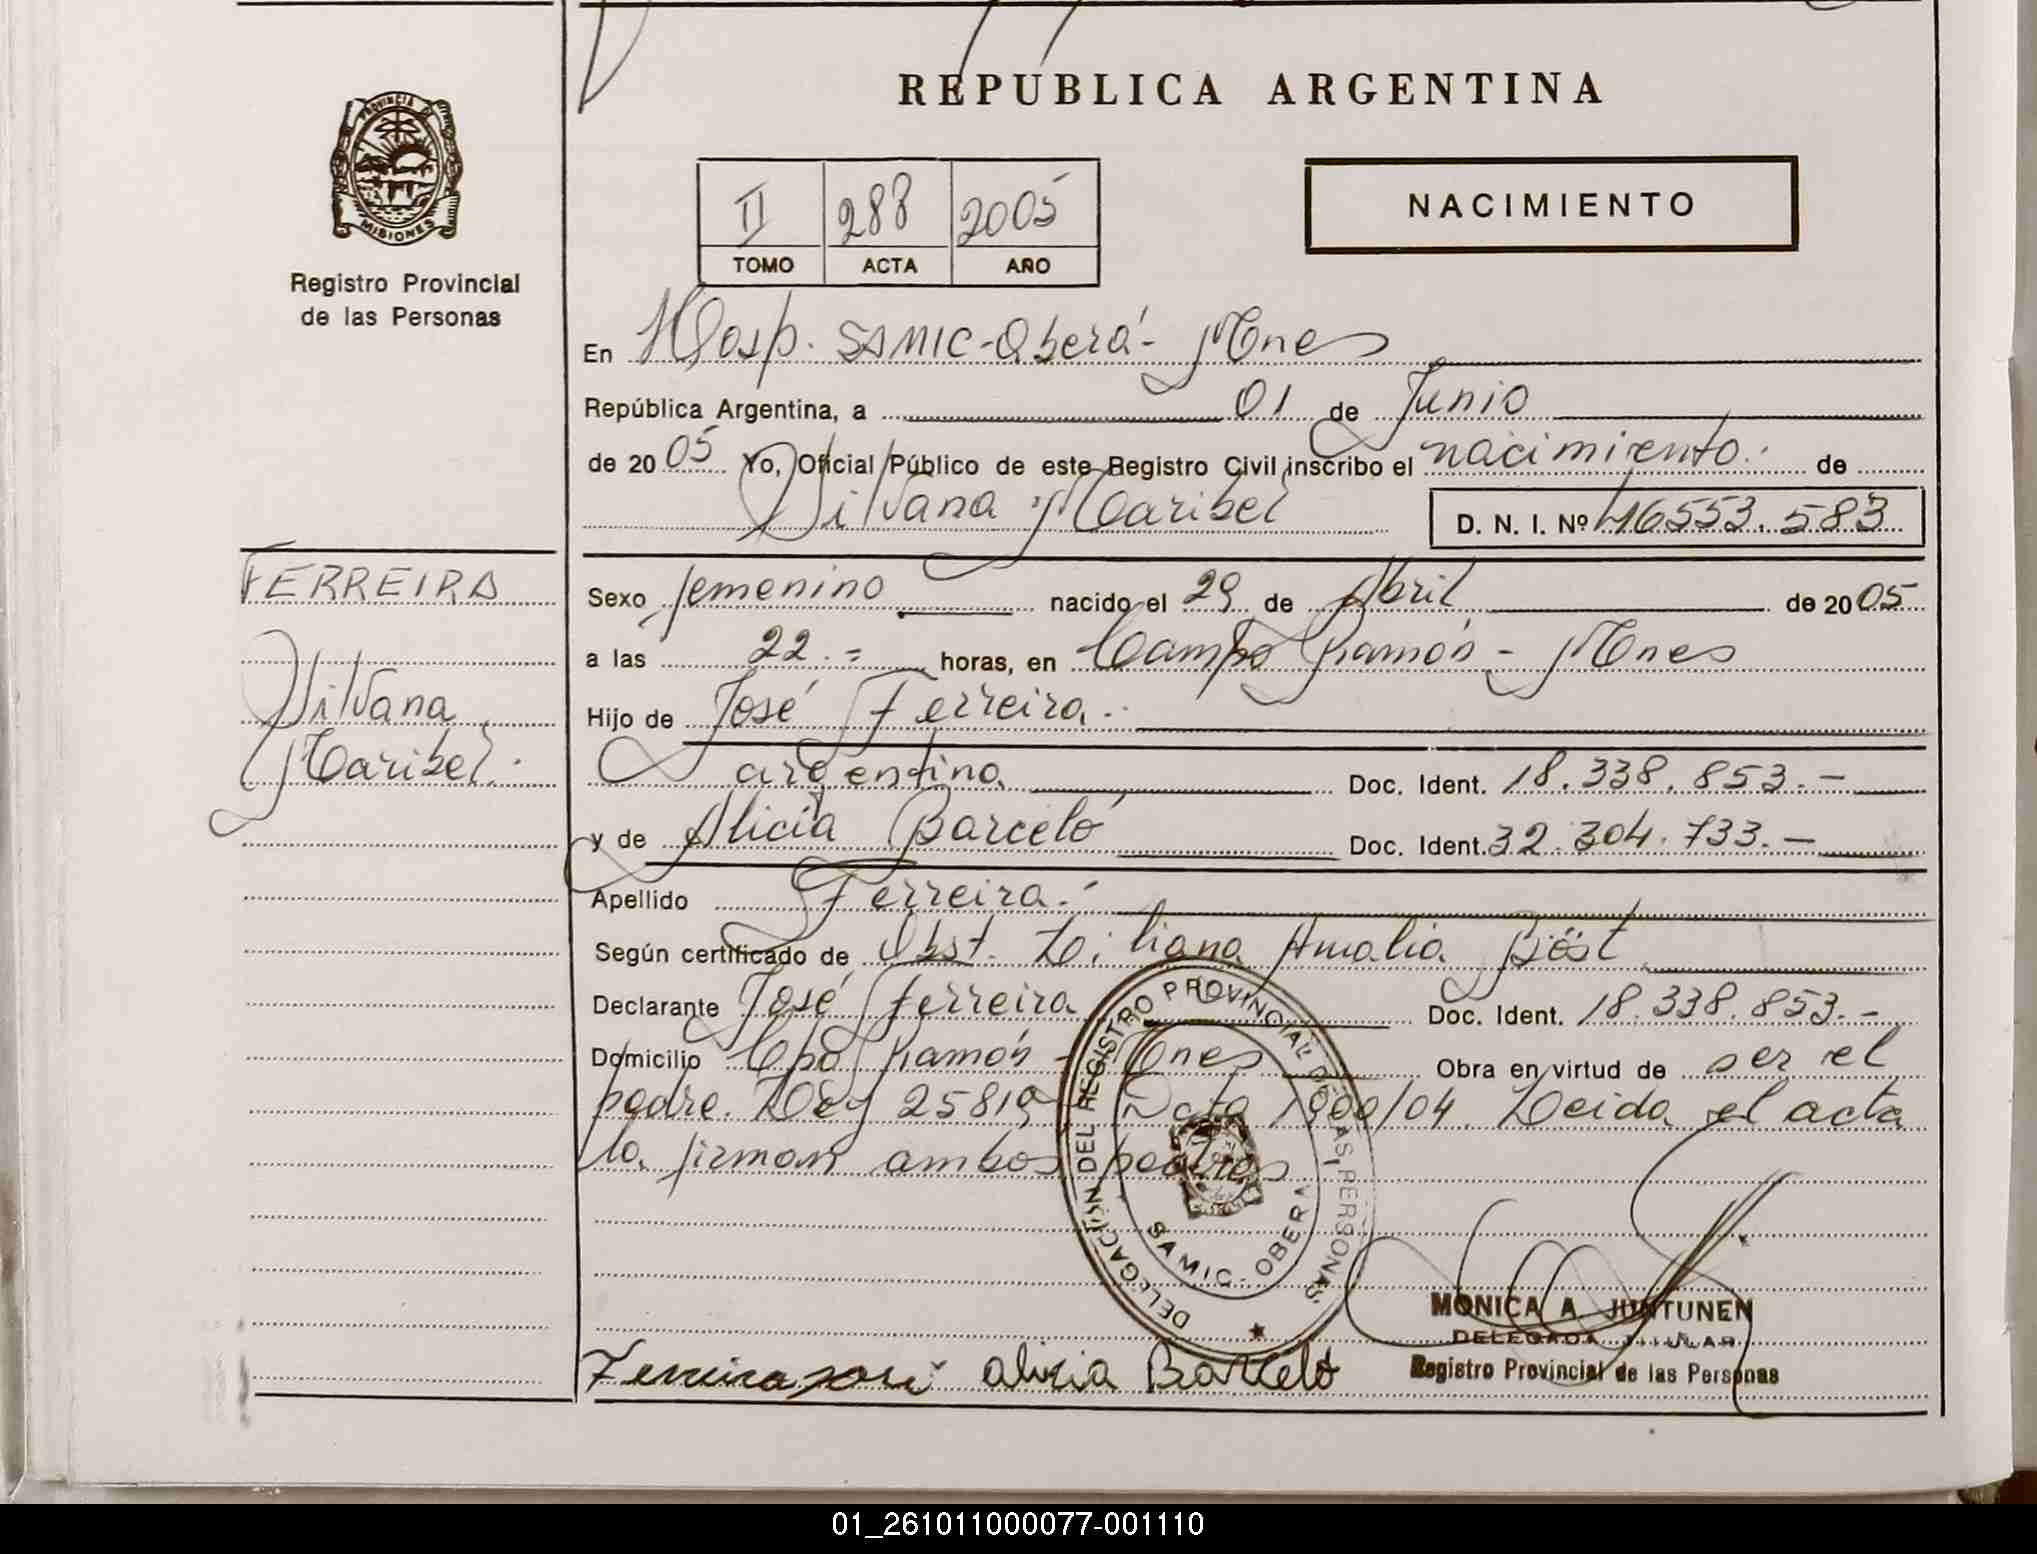 REPUBLICA ARGENTINA
PROVINCIA DE
MISIONES
Registro Provincial
de las Personas
II 288 2005
TOMO ACTA AÑO
NACIMIENTO
En Hosp. SAMIC-Oberá- Mnes
República Argentina, a 01 de Junio
de 2005 Yo, Oficial Público de este Registro Civil inscribo el nacimiento. de
Silvana Maribel D. N. I. Nº 46553.583
FERREIRA
Silvana
Maribel.
Sexo femenino nacido el 29 de Abril de 2005
a las 22.= horas, en Campo Ramón - Mnes
Hijo de José Ferreira.
argentina Doc. Ident. 18.338.853.-
y de Alicia Barceló Doc. Ident. 32.304.733.-
Apellido Ferreira.-
Según certificado de Obst. Liliana Amalia Böst
Declarante José Ferreira Doc. Ident. 18.338.853.-
Domicilio Cpo Ramón - Mnes Obra en virtud de ser el
padre. Ley 25819 - Dcto 1900/04. Leida el acta
la firman ambos padres
DELEGACION DEL REGISTRO PROVINCIAL DE LAS PERSONAS
SAMIC - OBERA
MONICA A. JUNTUNEN
DELEGADA TITULAR
Registro Provincial de las Personas
Ferreira José alicia Barceló
01_261011000077-001110